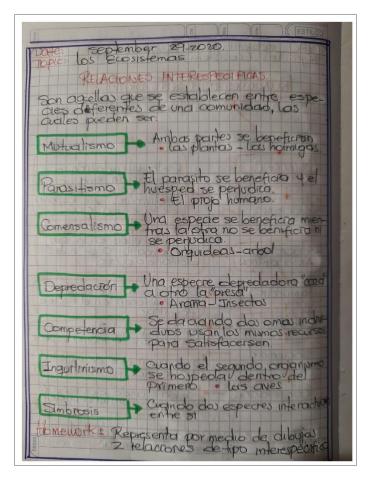 Date: September 29-2020.
Topic: los Ecosistemas
RELACIONES INTERESPECIFICAS
Son aquellas que se establecen entre espe-
cies diferentes de una comunidad, las
cuales pueden ser:
Mutualismo
Ambas partes se benefician
• Las plantas - Las hormigas
Parasitismo
El parasito se beneficia y el
huesped se perjudica.
• El piojo humano.
Comensalismo
Una especie se beneficia mien-
tras la otra no se beneficia ni
se perjudica
• Orquideas - arbol
Depredación
Una especie depredadora
a otro la "presa"
• Araña - Insectos
Competencia
Se da cuando dos o mas indivi
duos usan los mismos recursos
para satisfacersen
Inquilinismo
Cuando el segundo organismo
se hospeda dentro del
primero. • las aves
Simbiosis
Cuando dos especies interactuan
entre si
Homework: Representa por medio de dibujos
2 relaciones de tipo interespecifico